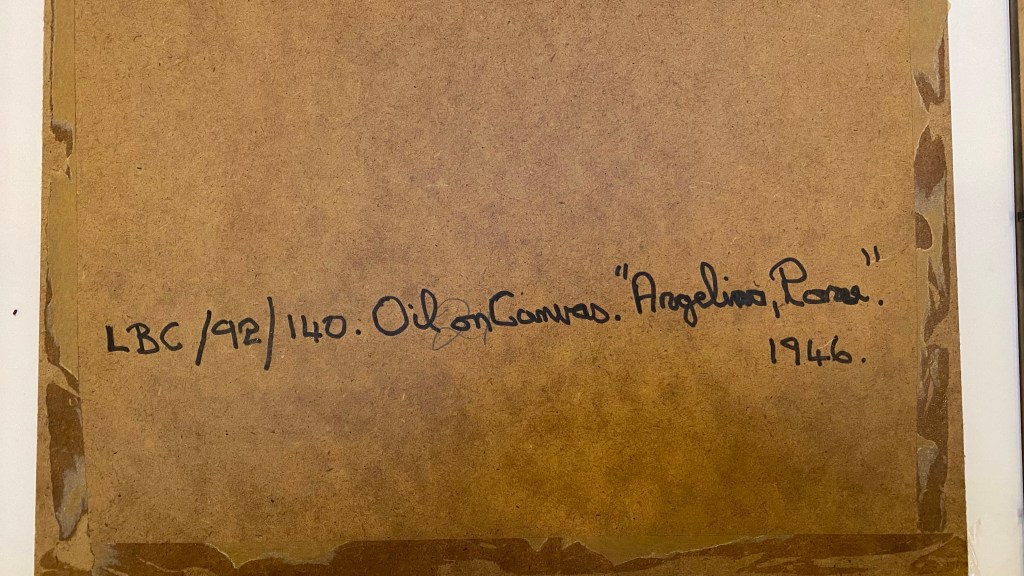 LBC /92/140. Oil on Canvas. "Angelina, Rome".
1946.